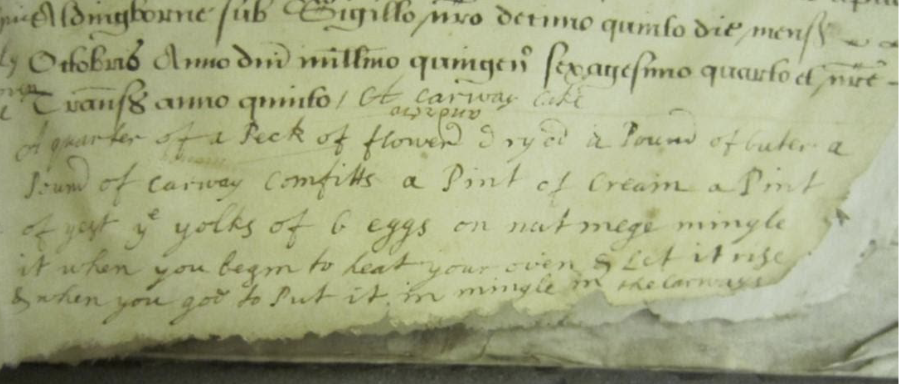 Aldingborne sub Sigillo nro decimo quinto die mens
Octobris Anno dni millimo quingen sexagesimo quarto et nre
Transs anno quinto / A carway cake
A quarter of a Peck of flower dryed a Pound of buter a
Pound of carway Comfitts a Pint of Cream a Pint
of yest ye yolks of 6 eggs on nutmege mingle
it when you begin to heat your oven & Let it rise
& when you goe to Put it in mingle in the Carways